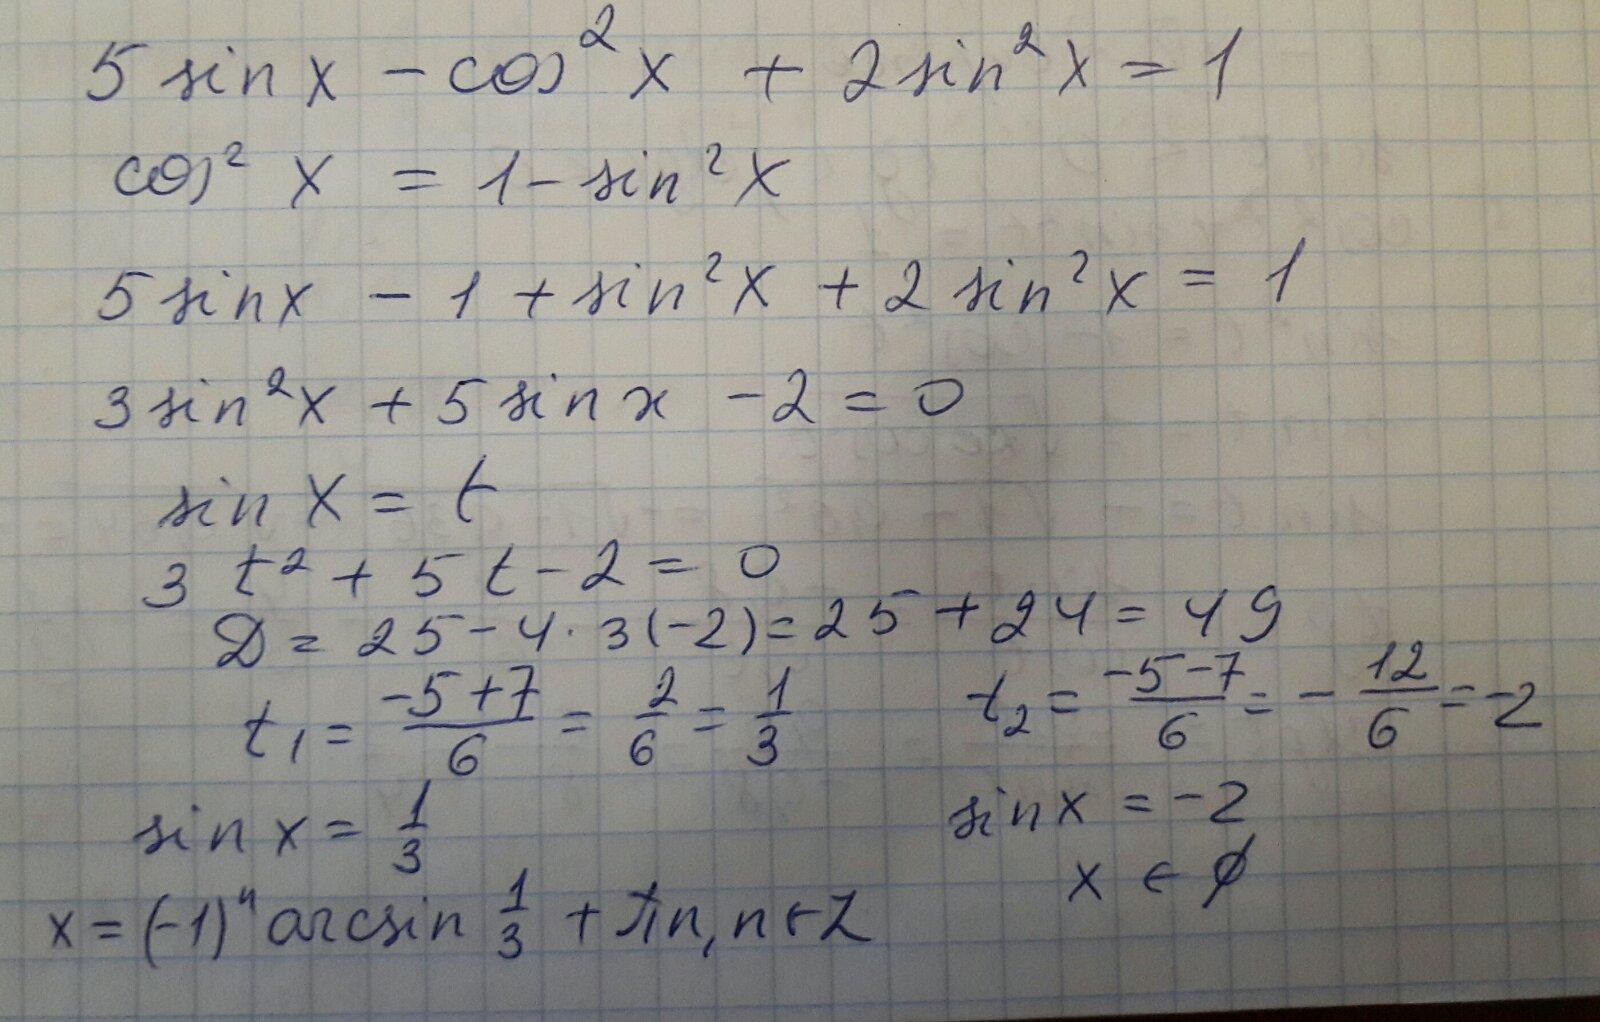 5 sin x - cos² x + 2 sin² x = 1
cos² x = 1 - sin² x
5 sin x - 1 + sin² x + 2 sin² x = 1
3 sin² x + 5 sin x - 2 = 0
sin x = t
3 t² + 5 t - 2 = 0
D = 25 - 4 · 3 (-2) = 25 + 24 = 49
t₁ = (-5 + 7)/6 = 2/6 = 1/3
t₂ = (-5 - 7)/6 = - 12/6 = -2
sin x = 1/3
sin x = -2
x ∈ ∅
x = (-1)ⁿ arcsin 1/3 + πn, n ∈ Z